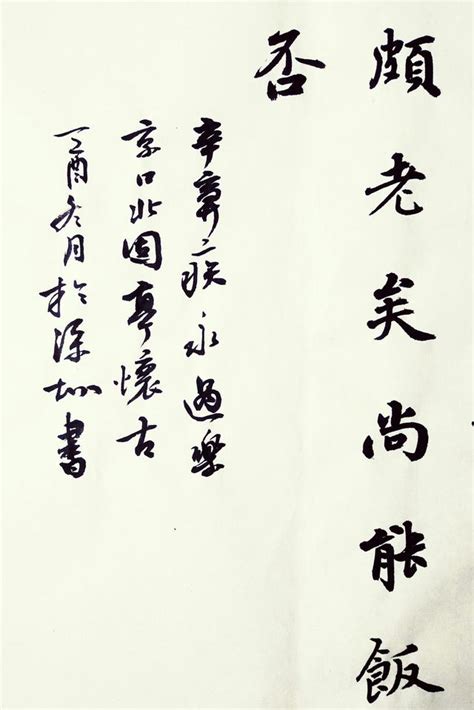 頗老矣尚能飯
否
辛棄疾永遇樂
京口北固亭懷古
丁酉冬月於深圳書